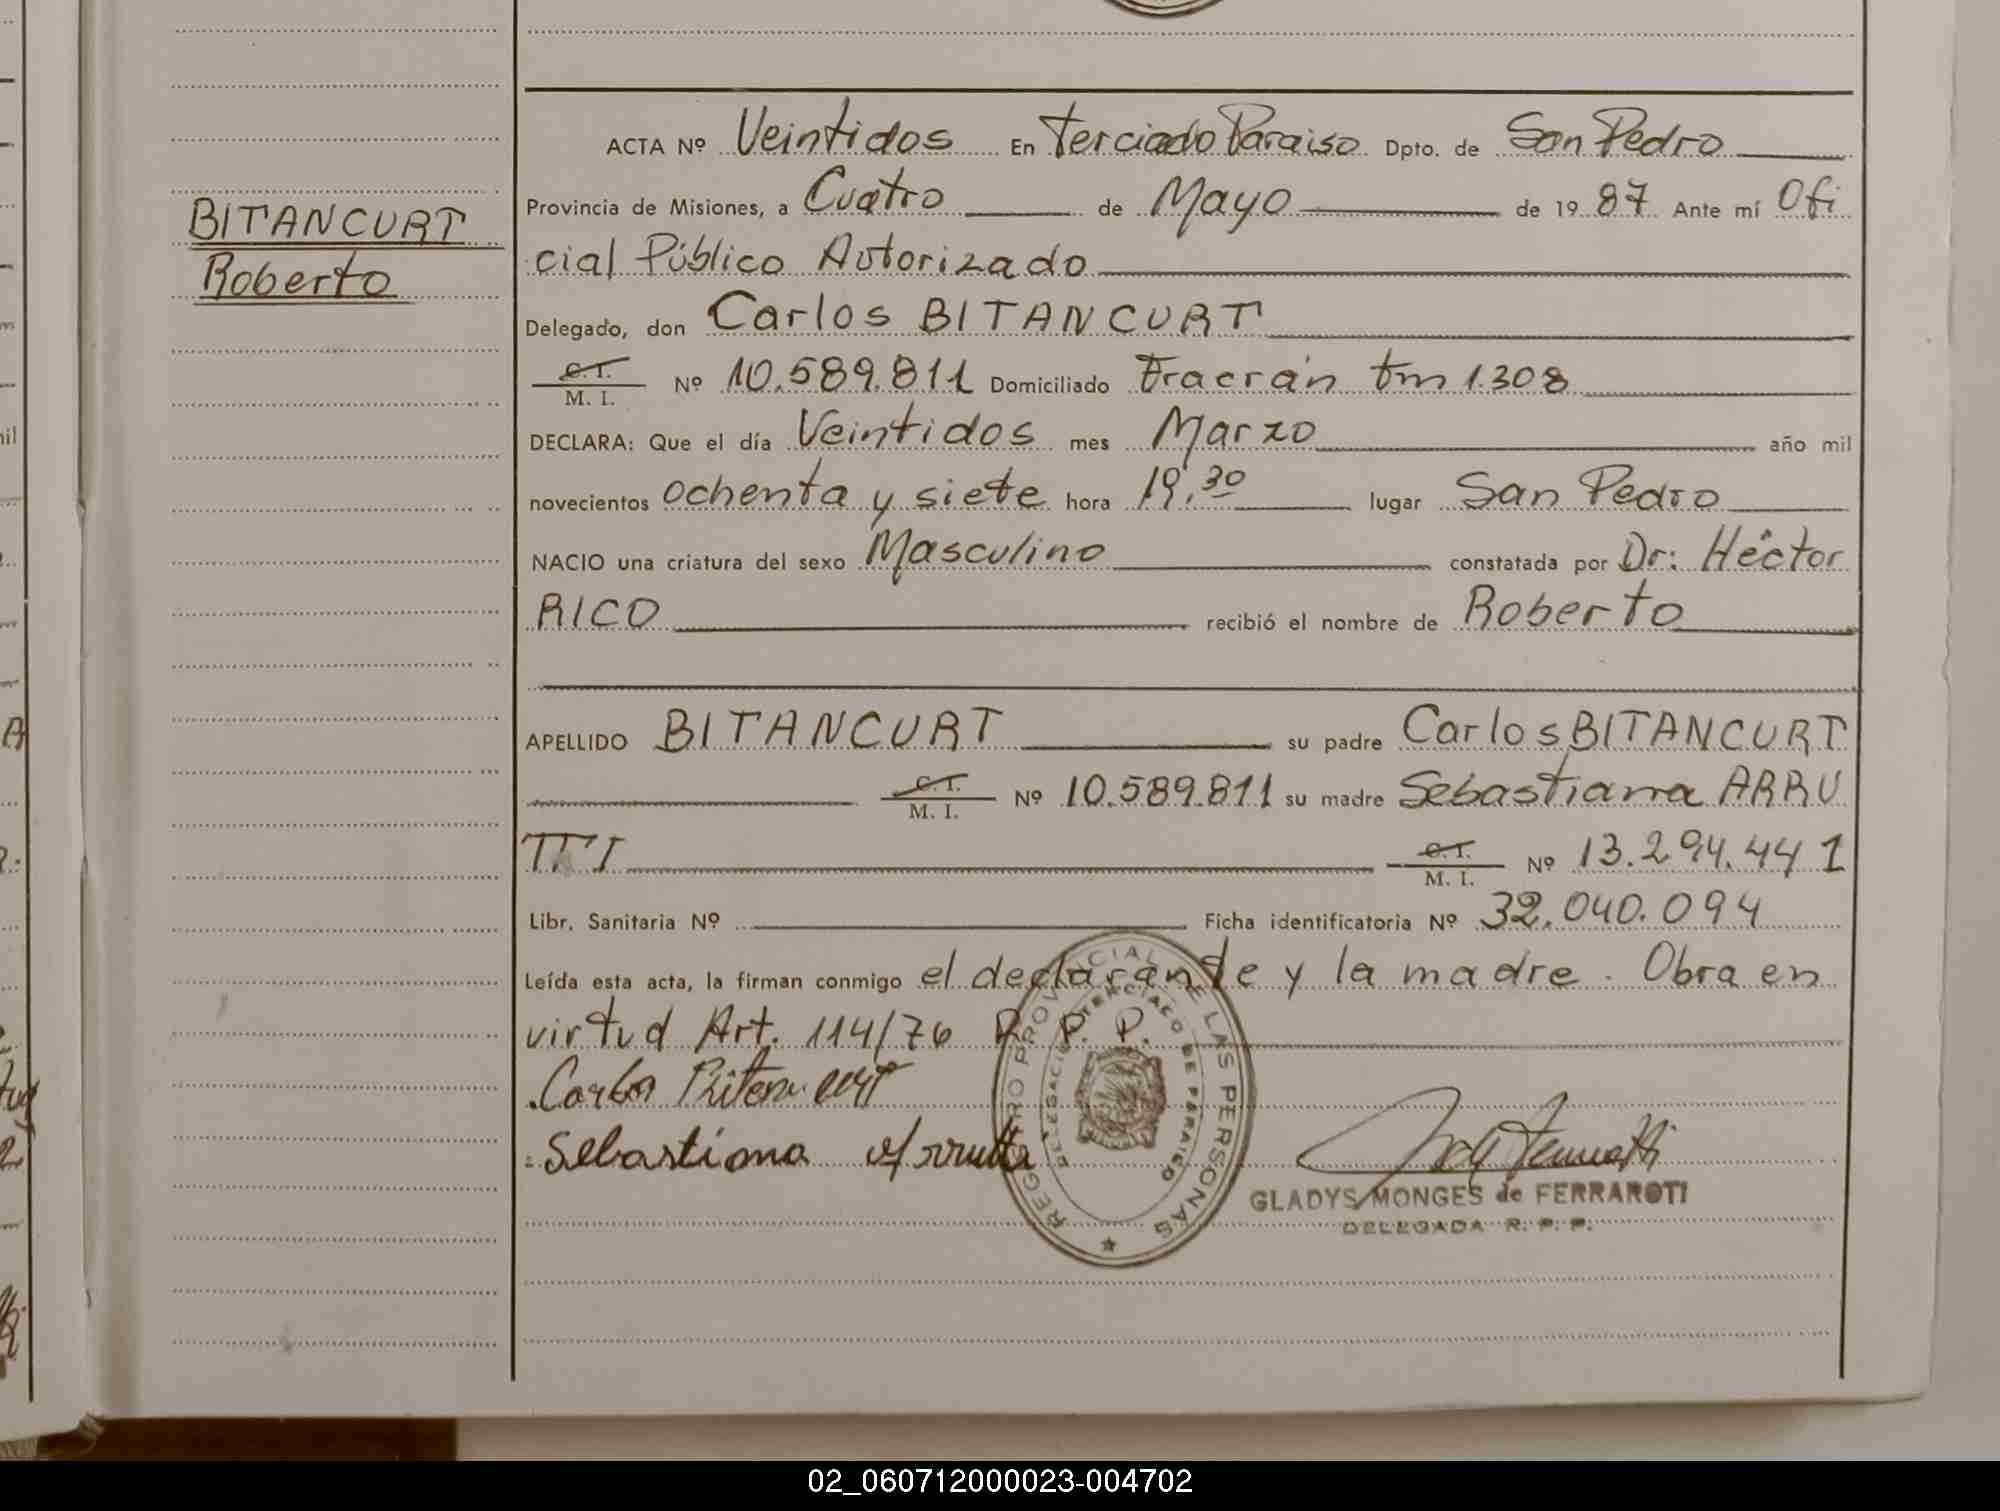 ACTA Nº Veintidos En Terciado Paraiso Dpto. de San Pedro
Provincia de Misiones, a Cuatro de Mayo de 19 87 Ante mí Ofi
BITANCURT
cial Público Autorizado
Roberto
Delegado, don Carlos BITANCURT
C. I.
M. I. Nº 10.589.811 Domiciliado Fracrán tm 1.308
DECLARA: Que el día Veintidos mes Marzo año mil
novecientos ochenta y siete hora 19.30 lugar San Pedro
NACIO una criatura del sexo Masculino constatada por Dr: Héctor
RICO recibió el nombre de Roberto
APELLIDO BITANCURT su padre Carlos BITANCURT
C. I.
M. I. Nº 10.589.811 su madre Sebastiana ARRU
TTI C. I.
M. I. Nº 13.294.441
Libr. Sanitaria Nº Ficha identificatoria Nº 32.040.094
Leída esta acta, la firman conmigo el declarante y la madre. Obra en
virtud Art. 114/76 R. P. P.
Carlos Bitancurt
Sebastiana Arrutti
REGISTRO PROVINCIAL DE LAS PERSONAS
DELEGACION TERCIADO DE PARAISO
GLADYS MONGES de FERRAROTI
DELEGADA R. P. P.
02_060712000023-004702